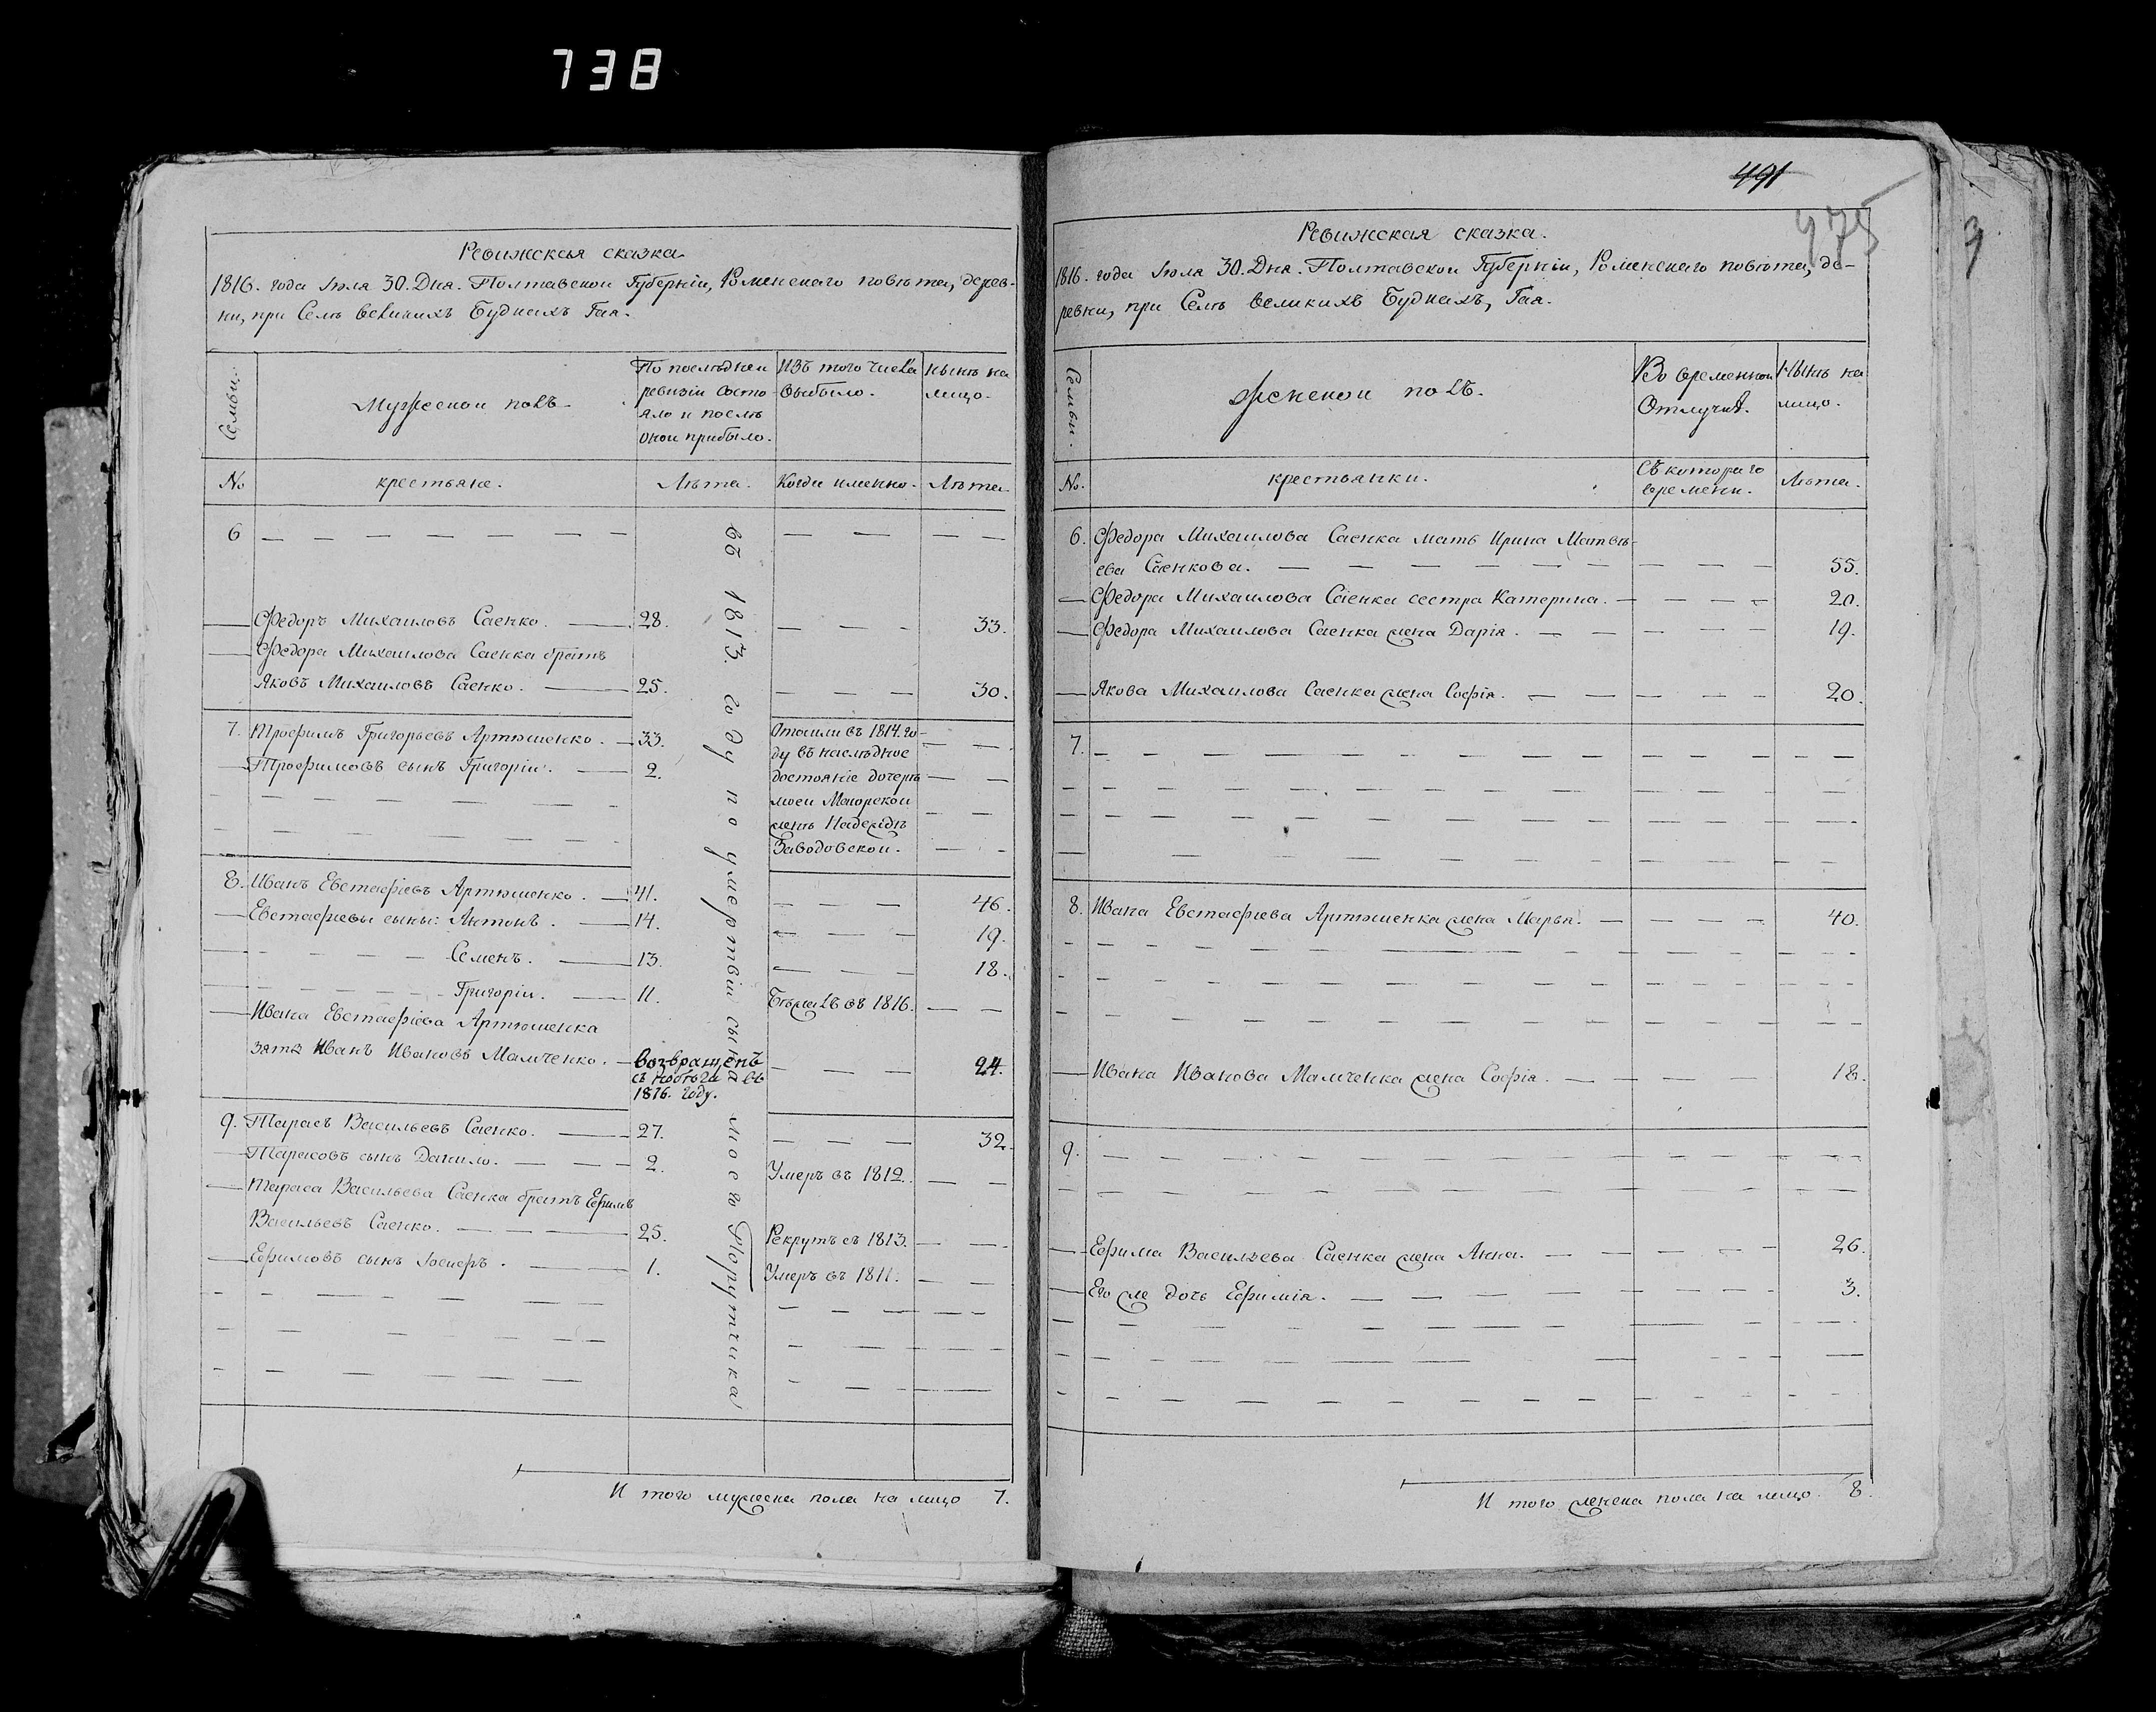 738
Ревижская сказка.
1816. года Іюля 30. Дня. Полтавской Губерніи, Роменскаго повѣта, дерев-
ни, при Селѣ великихъ Будкахъ Гая.
Семьи.
Мужеской полъ.
По послѣдней
ревизіи состо
яло и послѣ
оной прибыло.
Изъ того числа
выбыло.
Нынѣ на
лицо.
№
крестьяне.
Лѣта.
Когда именно.
Лѣта.
въ 1813. году по умертвіи сына моего Порутчика
6
Федоръ Михаиловъ Саенко. 28. 33.
Федора Михаилова Саенка братъ
Яковъ Михаиловъ Саенко. 25. 30.
7. Трофимъ Григорьевъ Артюшенко. 33.
Трофимовъ сынъ Григоріи. 2.
Отошли въ 1814. го-
ду въ наслѣдное
достояніе дочерѣ
моеи Маіорской
женѣ Надеждѣ
Заводовской.
8. Иванъ Евстафіевъ Артюшенко. 41. 46.
Евстафіевы сыны: Антонъ. 14. 19.
Семенъ. 13. 18.
Григоріи. 11. Бѣжалъ въ 1816.
Ивана Евстафіева Артюшенка
зять Иванъ Ивановъ Мамченко. возвращенъ 24.
съ побѣга въ
1816. году.
9. Тарасъ Васильевъ Саенко. 27. 32.
Тарасовъ сынъ Данило. 2. Умеръ въ 1812.
Тараса Васильева Саенка братъ Ефимъ
Васильевъ Саенко. 25. Рекрутъ съ 1813.
Ефимовъ сынъ Іосифъ. 1. Умеръ въ 1811.
И того мужеска пола на лицо 7.
491
975
Ревижская сказка.
1816. года Іюля 30. Дня. Полтавской Губерніи, Роменскаго повѣта, де-
ревни, при Селѣ великихъ Будкахъ, Гая.
Семьи.
Женской полъ.
Во временной
Отлучкѣ.
Нынѣ на
лицо.
№.
крестьянки.
Съ котораго
времени.
Лѣта.
6. Федора Михаилова Саенка мать Ирина Матвѣ-
ева Саенкова. 55.
Федора Михаилова Саенка сестра Катерина. 20.
Федора Михаилова Саенка жена Дарія. 19.
Якова Михаилова Саенка жена Софія. 20.
7.
8. Ивана Евстафіева Артюшенка жена Марья. 40.
Ивана Иванова Мамченка жена Софія. 18.
9.
Ефима Васильева Саенка жена Анна. 26.
Его же дочь Ефимія. 3.
И того женска пола на лицо 8.